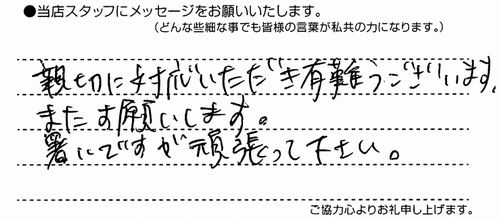 ●当店スタッフにメッセージをお願いいたします。
（どんな些細な事でも皆様の言葉が私共の力になります。）
親切に対応いただき有難うございます。
またお願いします。
暑いですが頑張って下さい。
ご協力心よりお礼申し上げます。